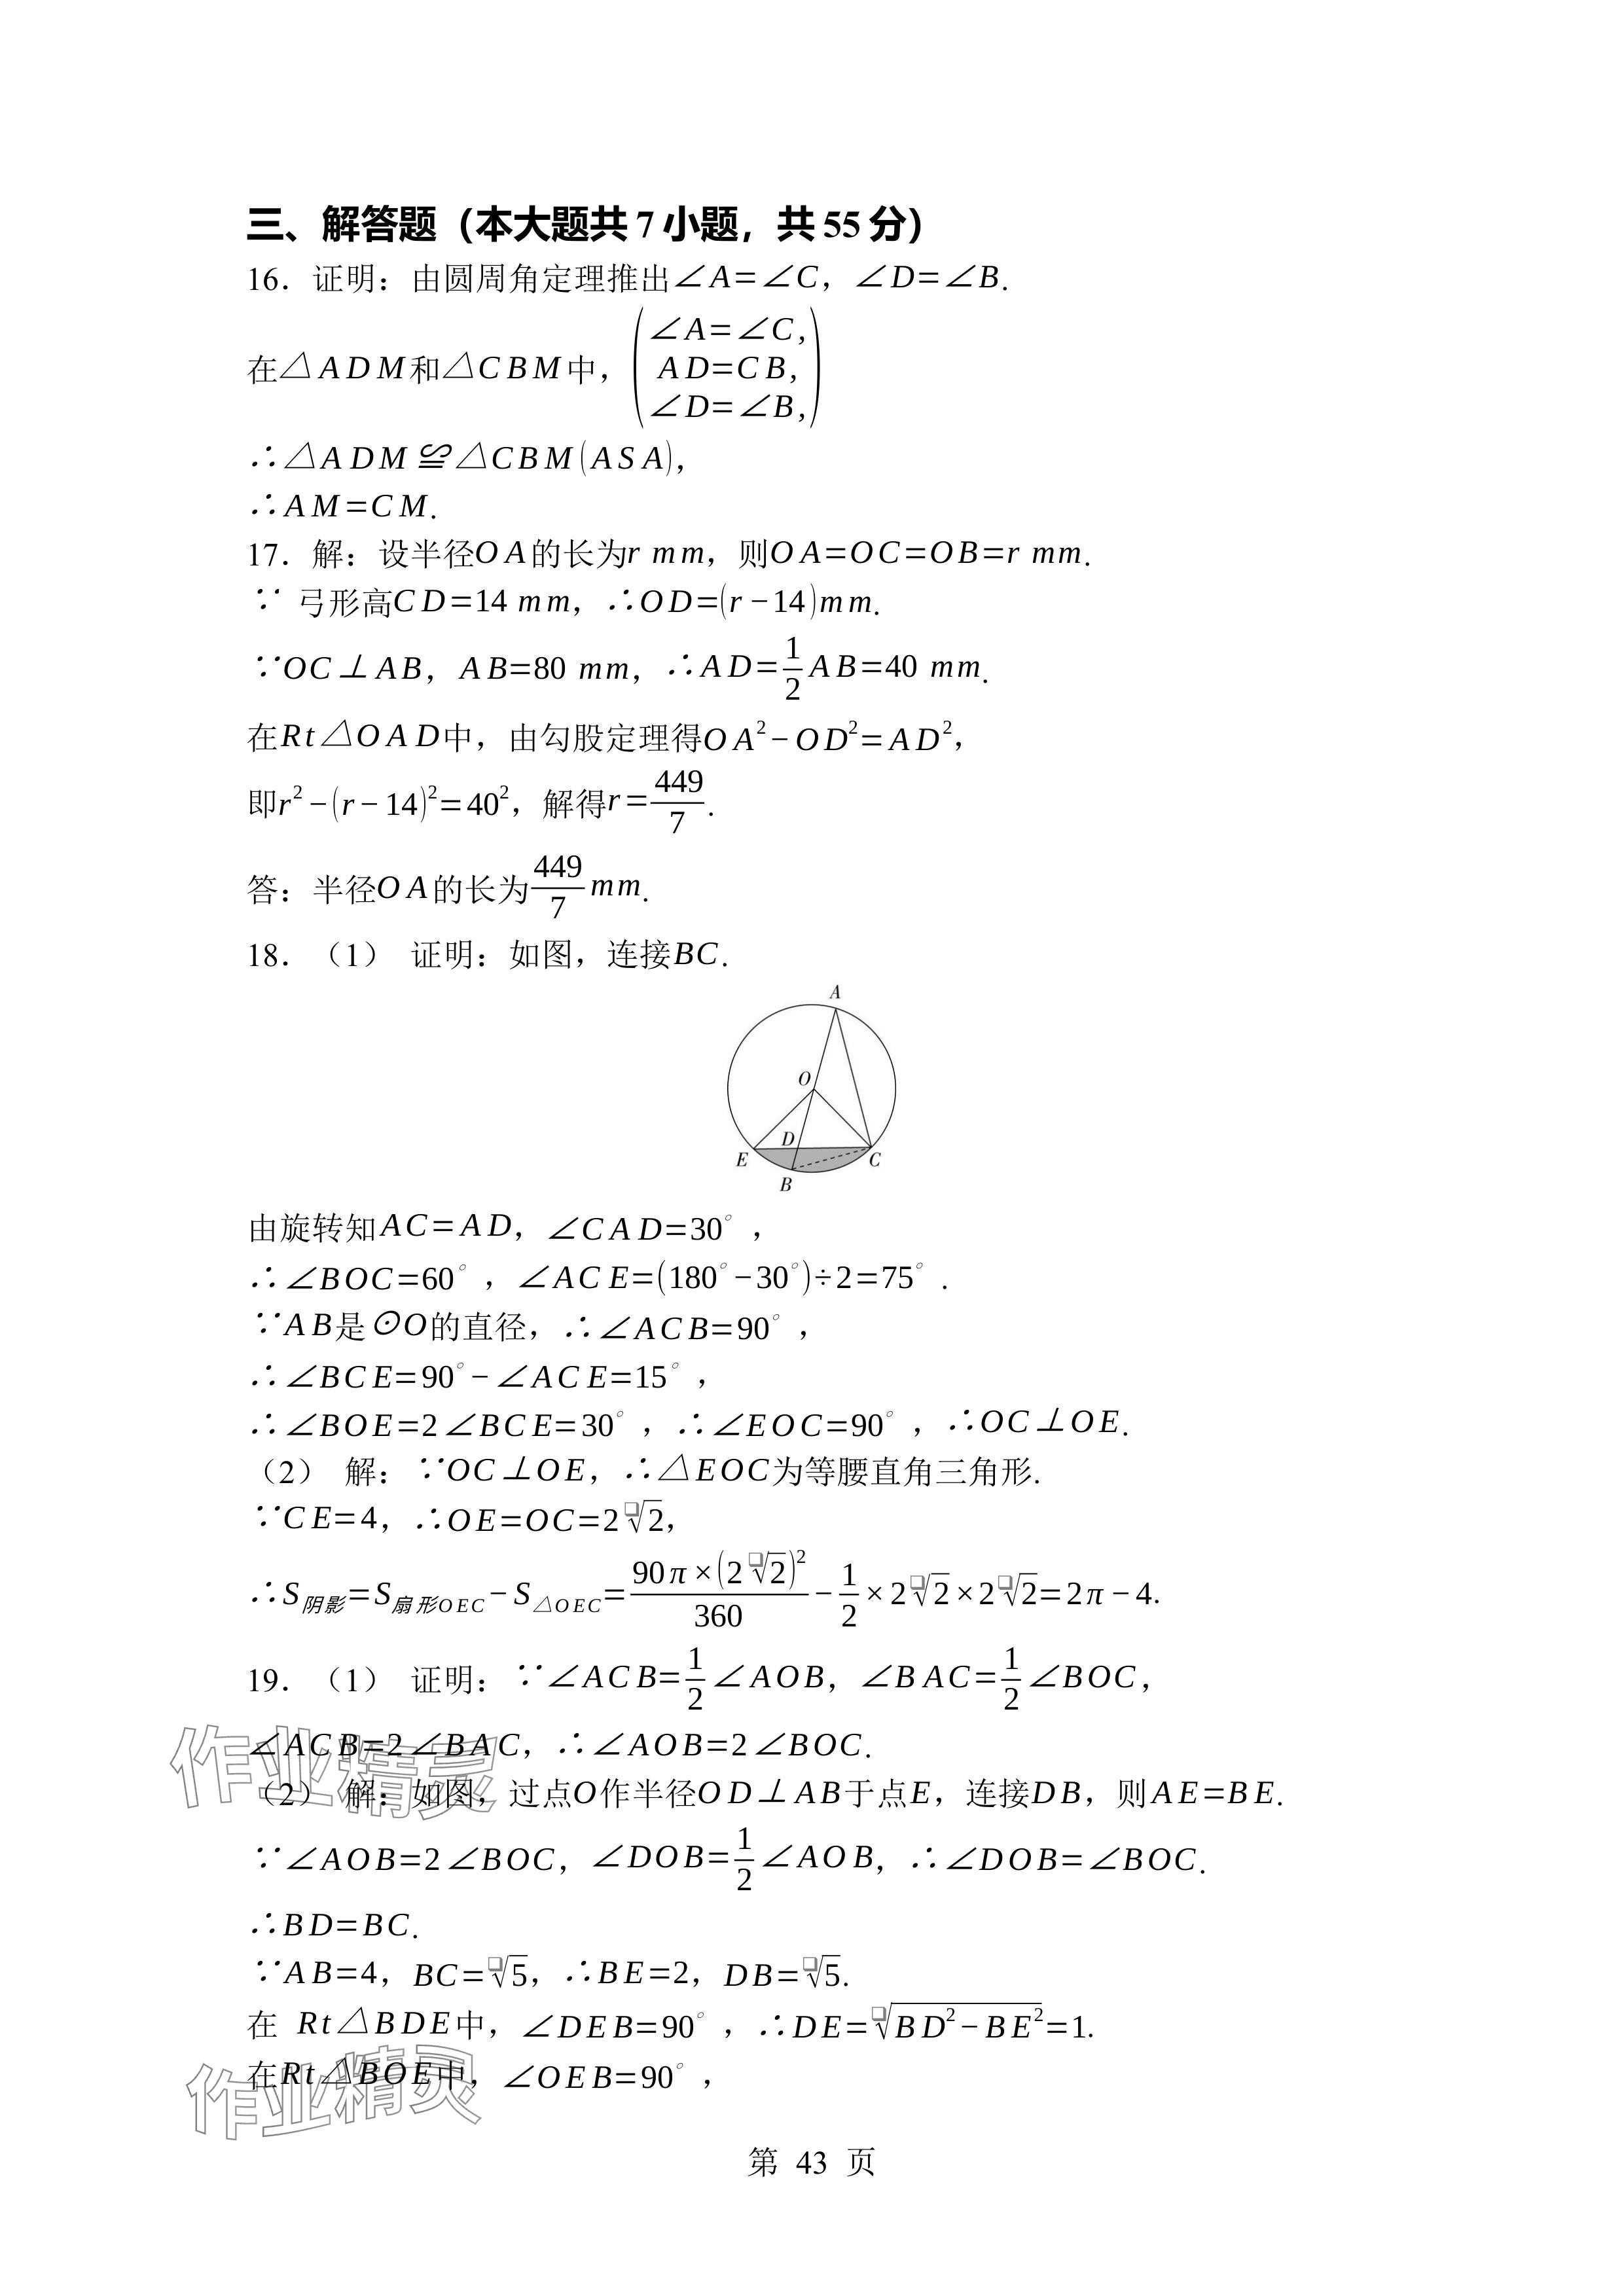 三、解答题（本大题共 7 小题，共 55 分）
16．证明：由圆周角定理推出∠A=∠C，∠D=∠B.
在△ADM和△CBM中，(∠A=∠C, AD=CB, ∠D=∠B,)
∴△ADM≌△CBM(ASA)，
∴AM=CM.
17．解：设半径OA的长为r mm，则OA=OC=OB=r mm.
∵ 弓形高CD=14 mm，∴OD=(r−14)mm.
∵OC⊥AB，AB=80 mm，∴AD=1/2 AB=40 mm.
在Rt△OAD中，由勾股定理得OA²−OD²=AD²，
即r²−(r−14)²=40²，解得r=449/7.
答：半径OA的长为449/7 mm.
18．（1） 证明：如图，连接BC.
A
O
D
E
C
B
由旋转知AC=AD，∠CAD=30°，
∴∠BOC=60°，∠ACE=(180°−30°)÷2=75°.
∵AB是⊙O的直径，∴∠ACB=90°，
∴∠BCE=90°−∠ACE=15°，
∴∠BOE=2∠BCE=30°，∴∠EOC=90°，∴OC⊥OE.
（2） 解：∵OC⊥OE，∴△EOC为等腰直角三角形.
∵CE=4，∴OE=OC=2√2，
∴S阴影=S扇形OEC−S△OEC=90π×(2√2)²/360−1/2×2√2×2√2=2π−4.
19．（1） 证明：∵∠ACB=1/2∠AOB，∠BAC=1/2∠BOC，
∠ACB=2∠BAC，∴∠AOB=2∠BOC.
（2） 解：如图，过点O作半径OD⊥AB于点E，连接DB，则AE=BE.
∵∠AOB=2∠BOC，∠DOB=1/2∠AOB，∴∠DOB=∠BOC.
∴BD=BC.
∵AB=4，BC=√5，∴BE=2，DB=√5.
在 Rt△BDE中，∠DEB=90°，∴DE=√(BD²−BE²)=1.
在Rt△BOE中，∠OEB=90°，
作业精灵
作业精灵
第 43 页